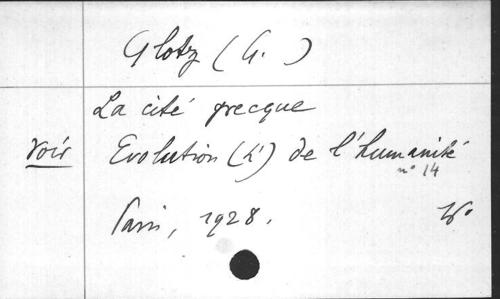 Glotz (G. )
La cité grecque
voir Evolution (L') de l'humanité
n° 14
Paris, 1928.